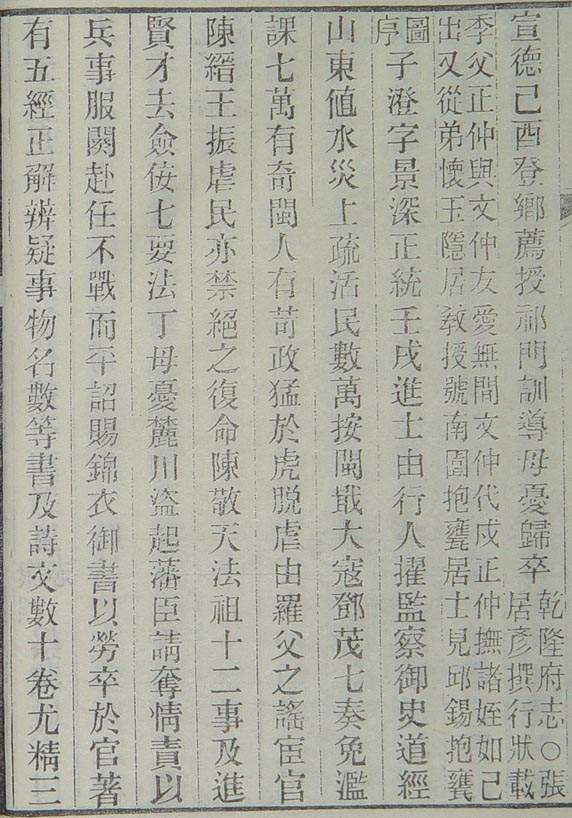 宣德己酉登鄉薦授祁門訓導母憂歸卒
乾隆府志○張
居彥撰行狀載
李父正仲與文仲友愛無間文仲代戍正仲撫諸姪如己
出又從弟懷玉隱居教授號南園抱甕居士見邱錫抱甕
圖
序
子澄字景深正統壬戌進士由行人擢監察御史道經
山東值水災上疏活民數萬按閩戢大寇鄧茂七奏免濫
課七萬有奇閩人有苛政猛於虎脫虐由羅父之謠宦官
陳縉王振虐民亦禁絕之復命陳敬天法祖十二事及進
賢才去僉佞七要法丁母憂麓川盜起藩臣請奪情責以
兵事服闋赴任不戰而平詔賜錦衣御書以勞卒於官著
有五經正解辨疑事物名數等書及詩文數十卷尤精三